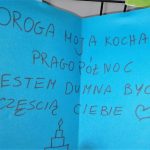 DROGA MOJA KOCHA
PRAGO PÓŁNOC
JESTEM DUMNA BYĆ
CZĘŚCIĄ CIEBIE